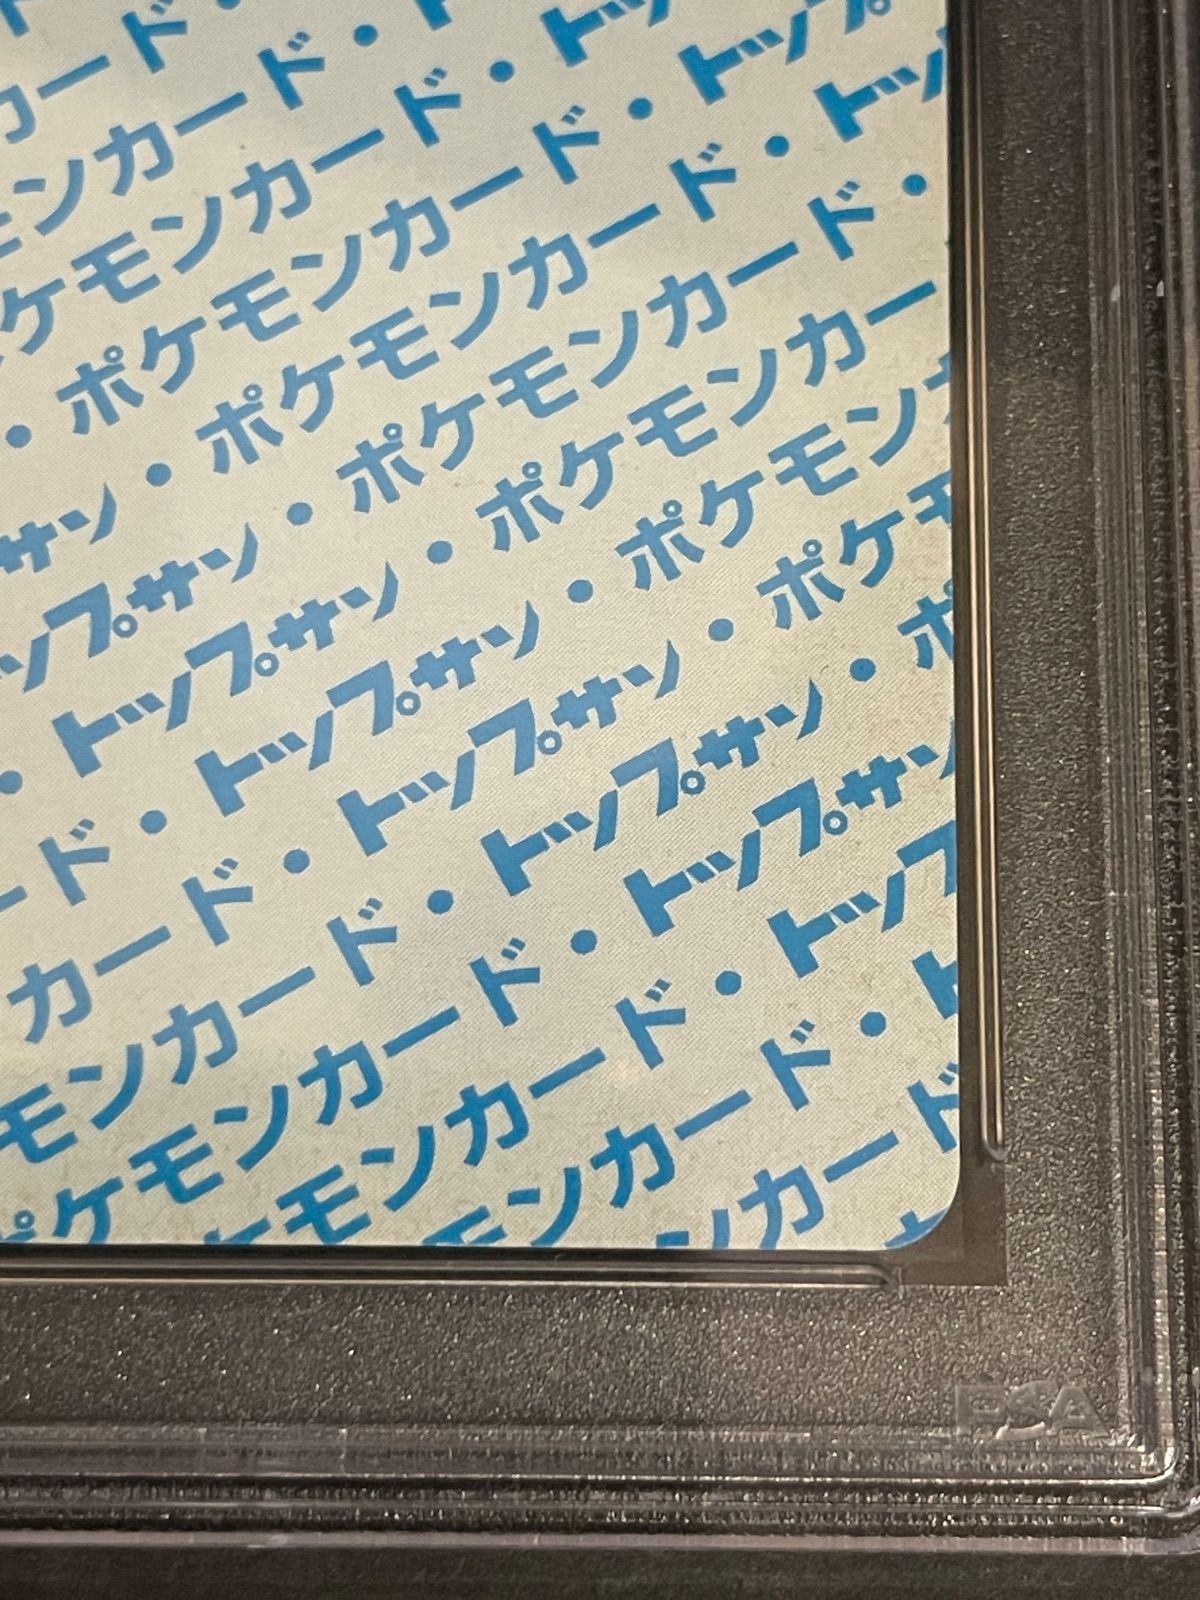 カード・
モンカード・ト
ケモンカード・トッ
・ポケモンカード・トップ
サン・ポケモンカード・トッ
ップサン・ポケモンカード・
・トップサン・ポケモンカー
ード・トップサン・ポケモン
カード・トップサン・ポケモ
モンカード・トップサン・ポ
ケモンカード・トップサン
モンカード・トップ
モンカード・ト
ンカード
PSA